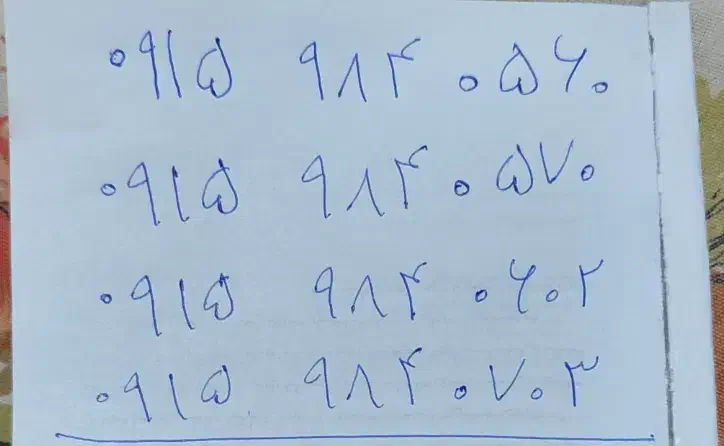 ۰۹۱۵ ۹۸۴ ۰۵۶۰
۰۹۱۵ ۹۸۴ ۰۵۷۰
۰۹۱۵ ۹۸۴ ۰۶۰۲
۰۹۱۵ ۹۸۴ ۰۷۰۳